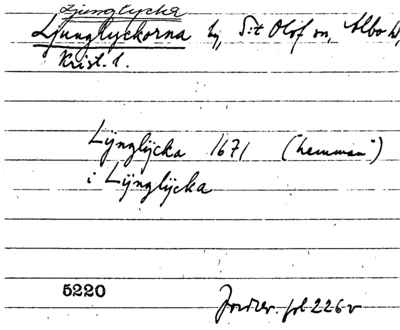 Ljunglycka
Ljunglyckorna by, S:t Olof sn, Albo hd,
Krist. l.
Lÿnglÿcka 1671 ("hemman")
i Lÿnglÿcka
5220
Jordrev. fol 226v